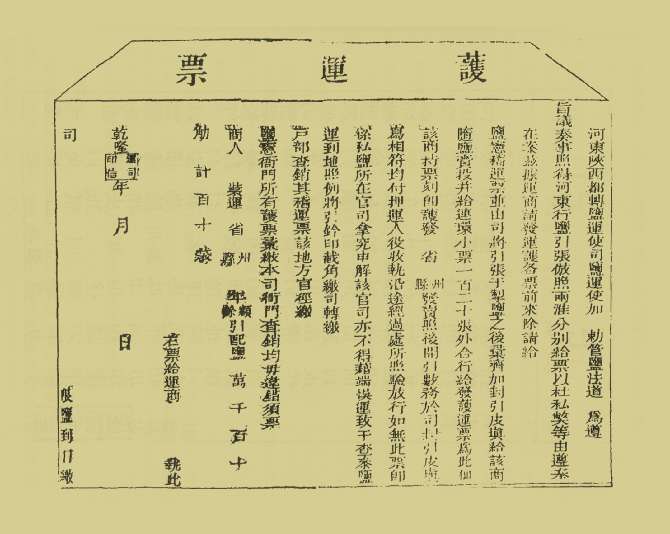 護運票
河東陝西都轉鹽運使司鹽運使加 勅管鹽法道 為遵
旨議奏事照得河東行鹽引張倣照兩淮分別給票以杜私獘等由遵奉
在案茲據運商請發運護各票前來除請給
鹽憲稽運票並由司將引張于掣鹽之後彙齊加封引皮與給該商
隨鹽賫投并給連環小票一百二十張外合行給發護運票為此仰
該商持票刻即護發 省 州縣發賣照後開引數務於司封引皮與
為相符均付押運人役收執沿途經過處所照驗放行如無此票即
係私鹽所在官司拿究申解該官司亦不得藉端悞運致干查泰鹽
運到地照例將引鈐印截角繳司轉繳
戶部查銷其稽運票該地方官徑繳
鹽憲衙門所有護票彙繳本司衙門查銷均毋違錯須票
商人 裝運 省 州縣 年額餘引配鹽 萬 千 百 十
觔 計 百 十 袋
右票給運商 執此
乾隆 年 月 日
運司印信
司 限鹽到日繳